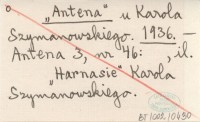 "Antena" u Karola
Szymanowskiego. 1936. —
Antena 3, nr 46: , il.
"Harnasie" Karola
Szymanowskiego.
BJ 1002, 10430